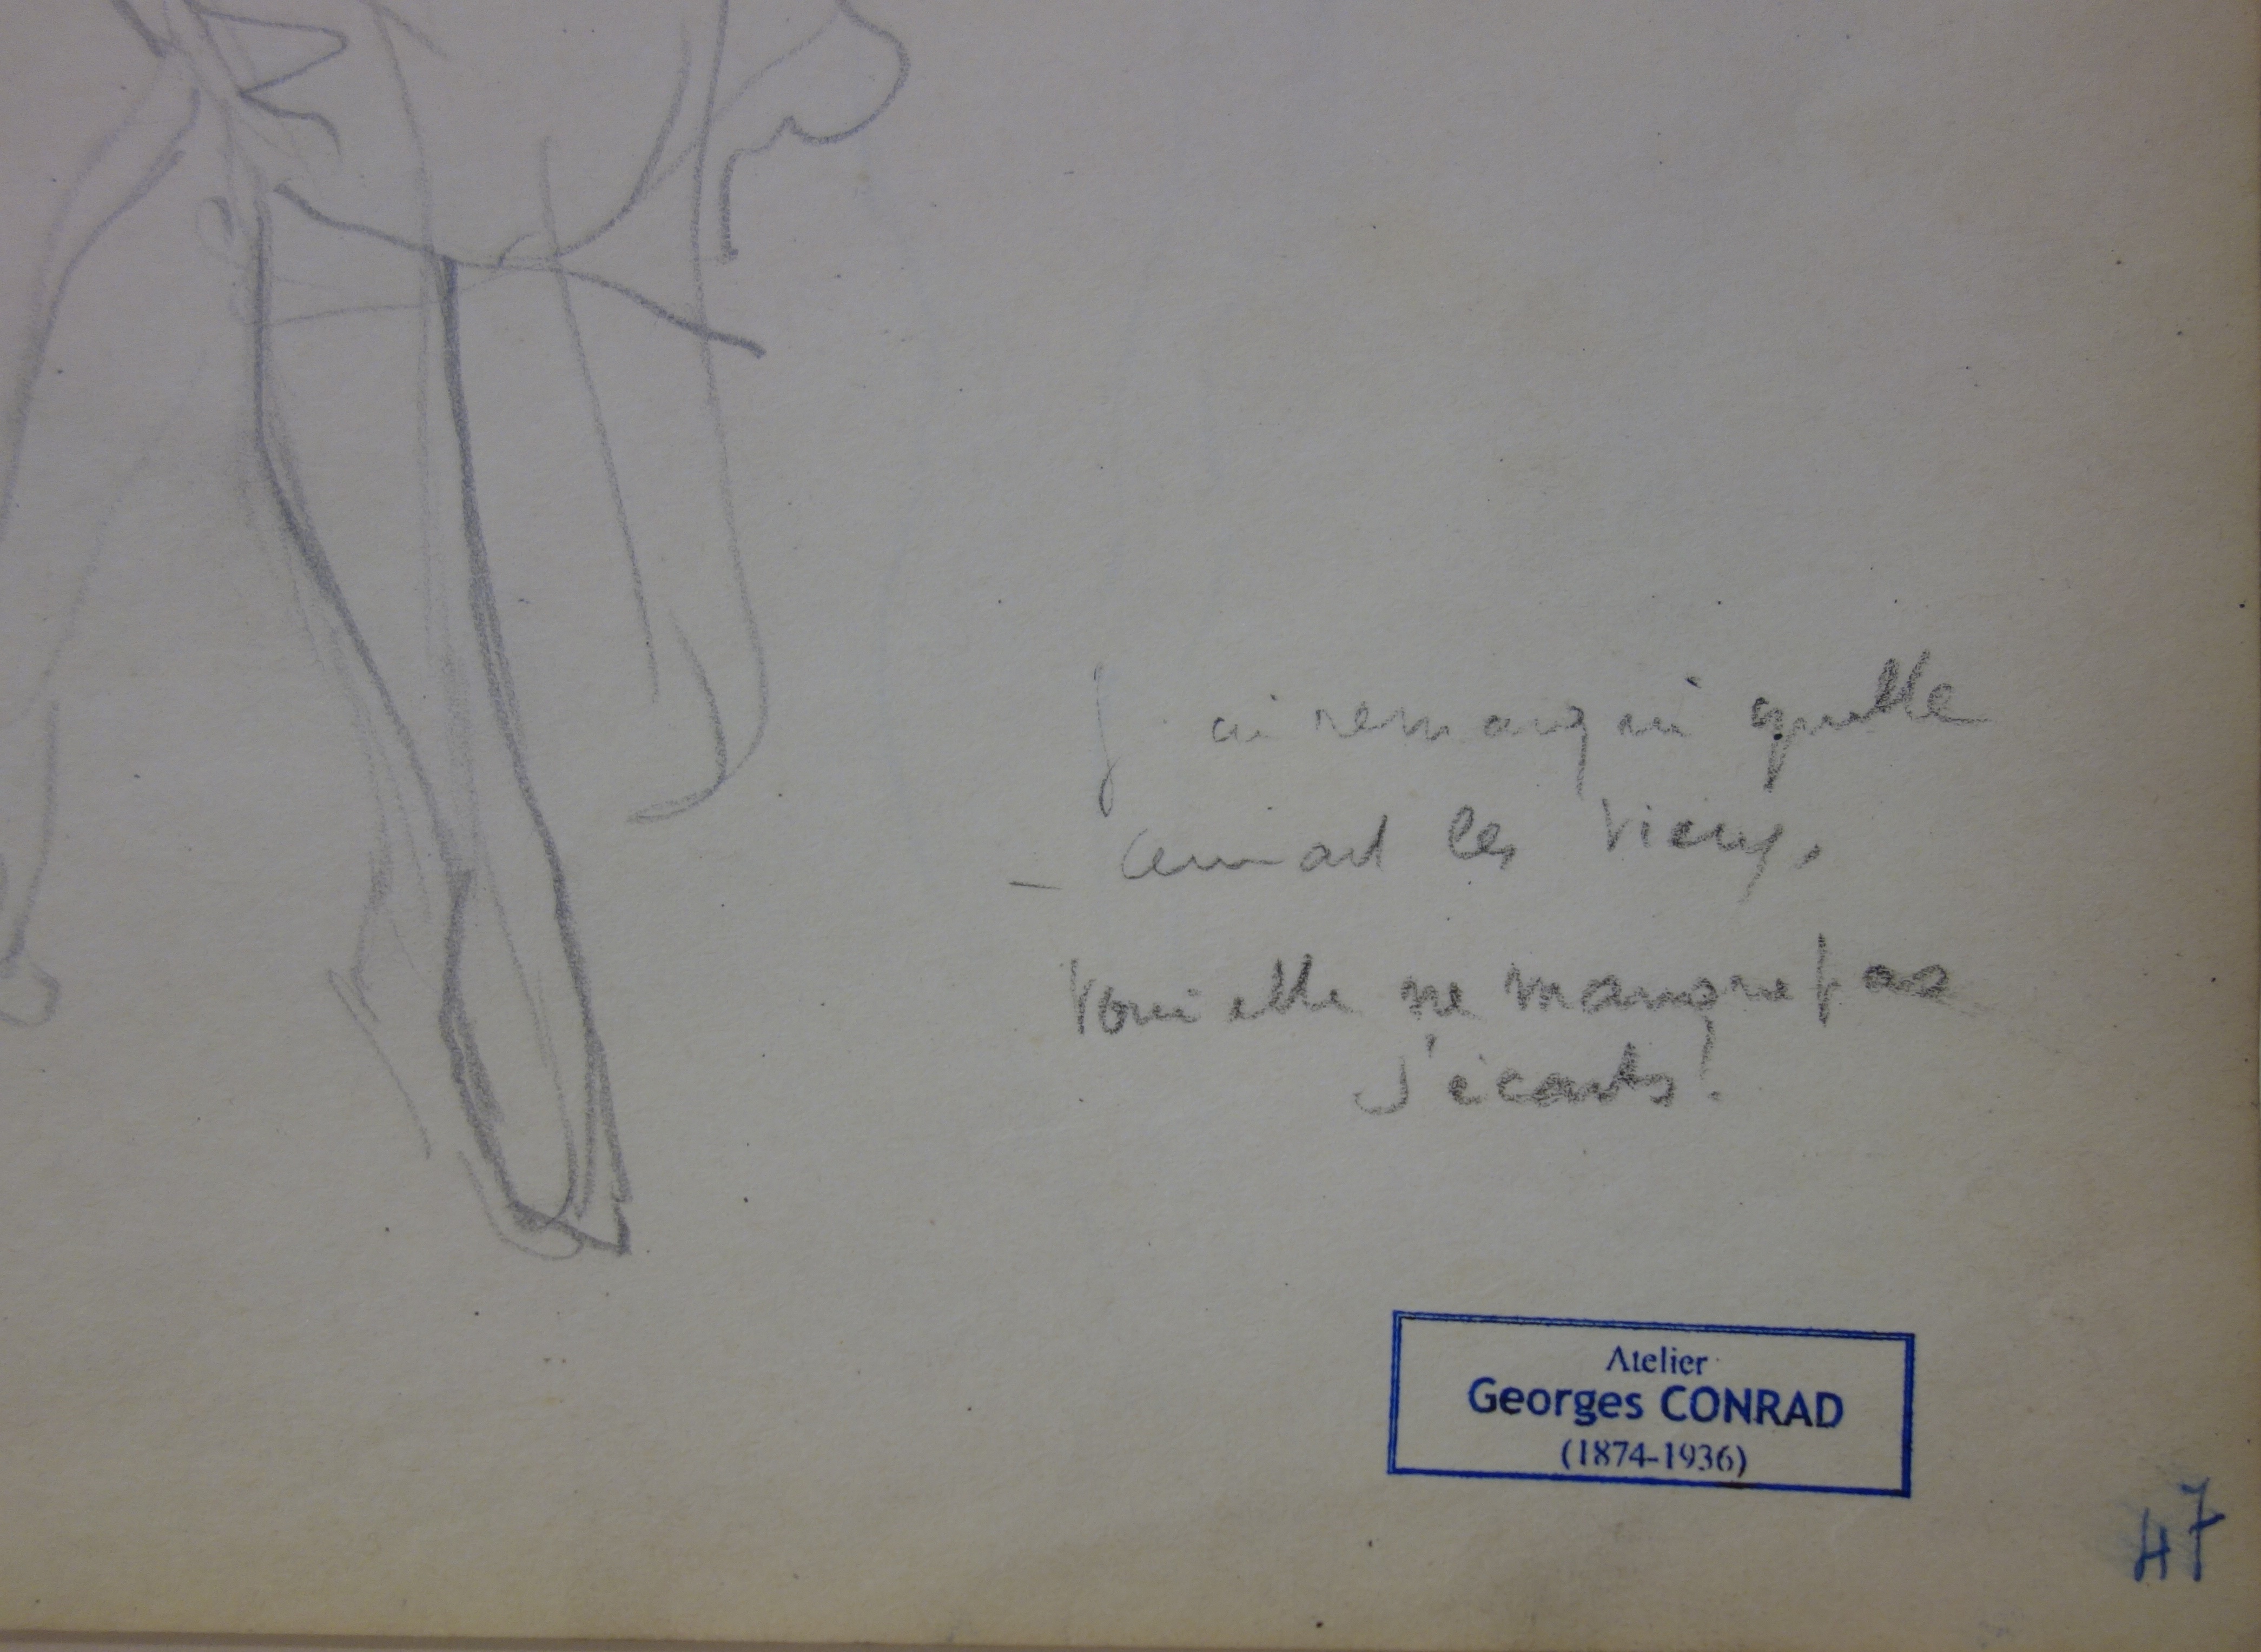 J'ai remarqué qu'elle
aimait les vieux,
elle ne manque pas
d'écarts!
Atelier
Georges CONRAD
(1874-1936)
47